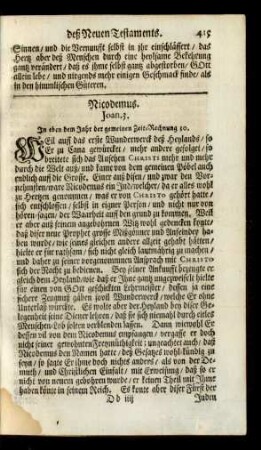 deß Neuen Testaments. 415
Sinnen / und die Vernunfft selbst in ihr einschläffert / das
Hertz aber deß Menschen durch eine heylsame Bekehrung
gantz verändert / daß es ihme selbst gantz abgestorben / GOtt
allein lebe / und nirgends mehr einigen Geschmack finde / als
in den himmlischen Güteren.
Nicodemus.
Joan. 3.
In eben dem Jahr der gemeinen Zeit-Rechnung 30.
WEil auff das erste Wunderwerck deß Heylands / so
Er zu Cana gewürckt / mehr andere gefolget / so
breitete sich das Ansehen CHRISTI mehr und mehr
durch die Welt auß / und kame von dem gemeinen Pöbel auch
endlich auf die Grosse. Einer auß disen / und zwar den Vor-
nehmsten / ware Nicodemus ein Jud / welcher / da er alles wohl
zu Hertzen genommen / was er von CHRISTO gehört hatte /
sich entschlossen / selbst in eigner Person / und nicht nur von
hören-sagen / der Waarheit auf den grund zu kommen. Weil
er aber auß seinem angebohrnen Witz wohl gedencken kopte /
daß diser neue Prophet grosse Mißgönner und Anfeinder ha-
ben wurde / wie jenes gleichen andere allzeit gehabt hätten /
hielte er für rathsam / sich nicht gleich lautmährig zu machen /
und daher zu seiner vorgenommenen Ansprach mit CHRISTO
sich der Nacht zu bedienen. Bey seiner Ankunfft bezeugte er
gleich dem Heyland / wie daß er Ihne gantz ungezweiffelt hielte
für einen von GOtt geschickten Lehrmeister / dessen ja eine
sichere Zeugnuß gäben so vil Wunderwerck / welche Er ohne
Unterlaß würckte. Es wolte aber der Heyland bey diser Ge-
legenheit seine Diener lehren / daß sie sich niemahl durch eitles
Menschen-Lob solten verblenden lassen. Dann wiewohl Er
dessen vil von dem Nicodemus empfangen / vergasse er doch
nicht seiner gewohnten Freymüthigkeit: ungeachtet auch / daß
Nicodemus den Namen hatte / deß Gesatzes wohl-kündig zu
seyn / so sagte Er ihme doch nichts anders / als von der De-
muth / und Christlichen Einfalt / mit Erweisung / daß so er
nicht von neuem gebohren wurde / er keinen Theil mit Ihme
haben könte in seinem Reich. Es konte aber diser Fürst der
D d iiij Juden